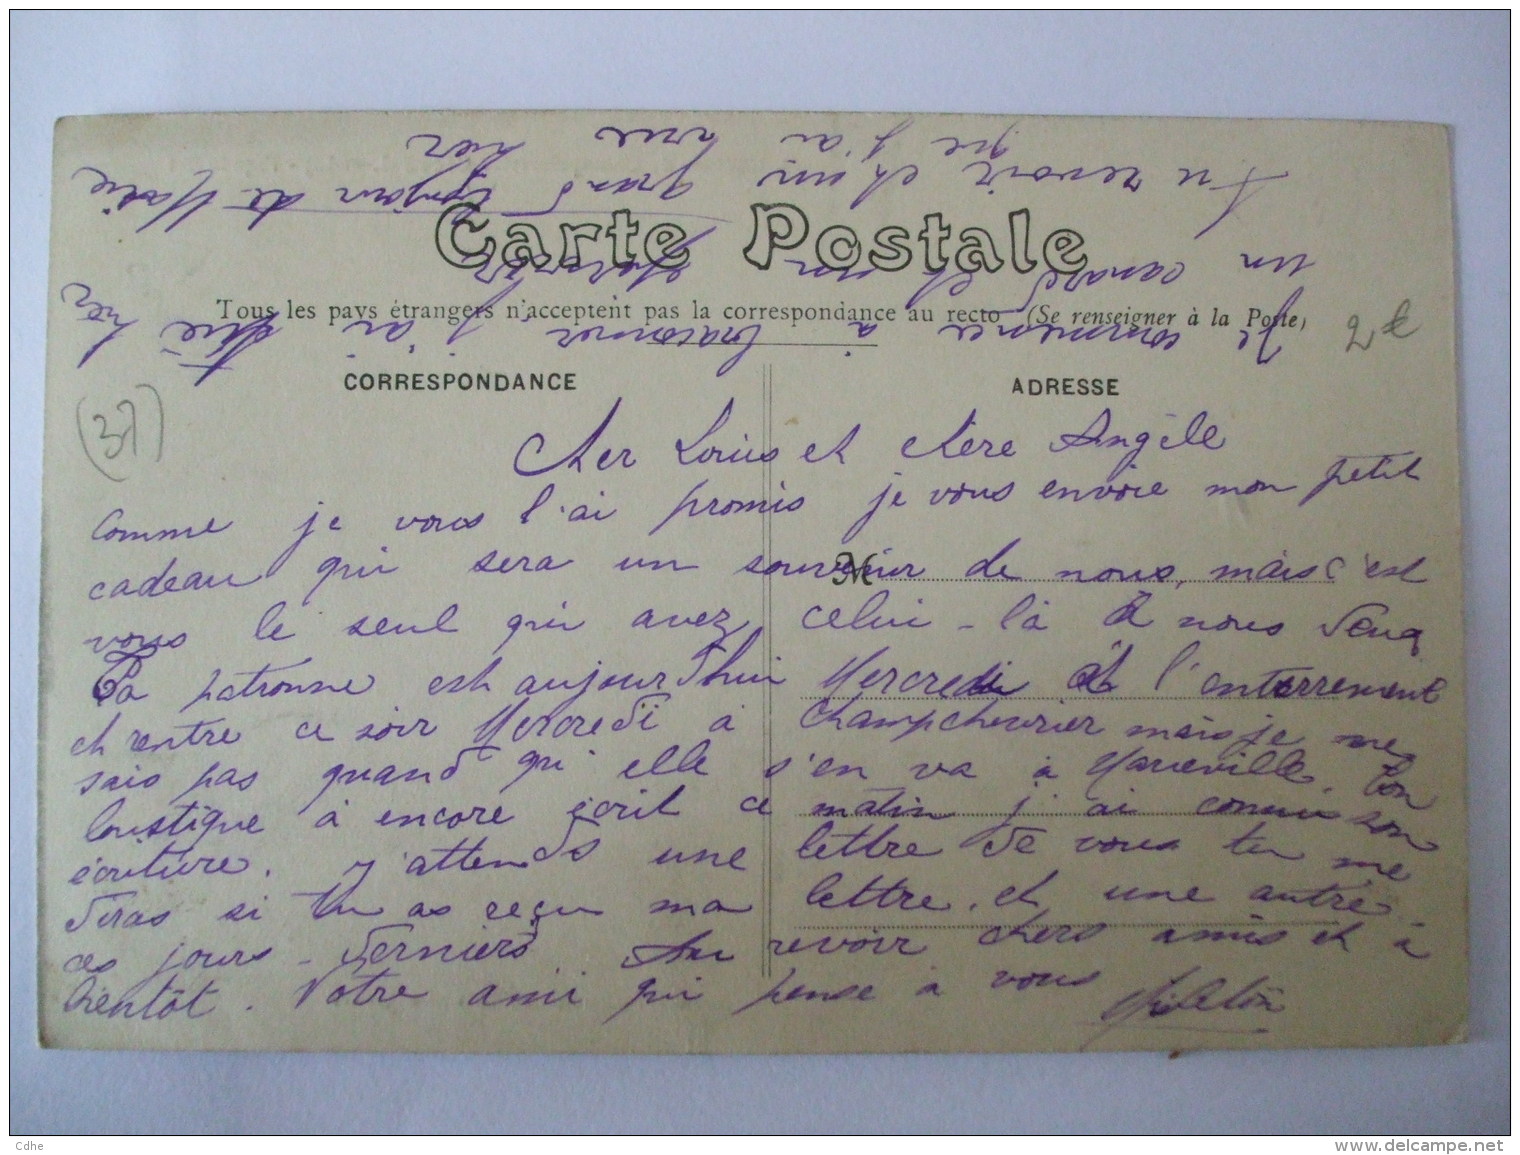 Carte Postale
Tous les pays étrangers n'acceptent pas la correspondance au recto (Se renseigner à la Poste)
CORRESPONDANCE
ADRESSE
2€
(37)
Cher Louis et chère Angèle
comme je vous l'ai promis je vous envoie mon petit
cadeau qui sera un souvenir de nous, mais c'est
M
vous le seul qui avez celui-là à nous deux
La patronne est aujourd'hui Mercredi à l'enterrement
et rentre ce soir Mercredi à Champchevrier mais je ne
sais pas quand qu'elle s'en va à Ton
loustique à encore écrit ce matin j'ai connu son
écriture. j'attends une lettre de vous tu me
diras si tu as reçu ma lettre. et une autre
ces jours-derniers Au revoir chers amis et à
bientôt. Votre ami qui pense à vous
Je commence à braconner j'ai tué hier
un canard et
Au revoir et un grand bonjour de
que j'ai hier
Cdhe
www.delcampe.net